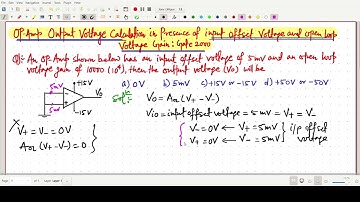 OP-Amp Output Voltage Calculation in Presence of input offset Voltage and open loop
Voltage Gain: Gate 2000
Q: An OP-Amp shown below has an input offset voltage of 5mV and an open loop
voltage gain of 10000 (10⁴), then the output voltage (Vo) will be
a) 0V b) 5mV c) +15V or -15V d) +50V or -50V
+15V
5mV
5mV
Vo
-15V
Solⁿ:
Vo = AOL (V+ - V-)
Vio = input offset voltage = 5mV = V+ - V-
V+ = V- = 0V
AOL (V+ - V-) = 0
V- = 0V ← V+ = 5mV
V+ = 0V ← V- = 5mV
i/p offset
voltage